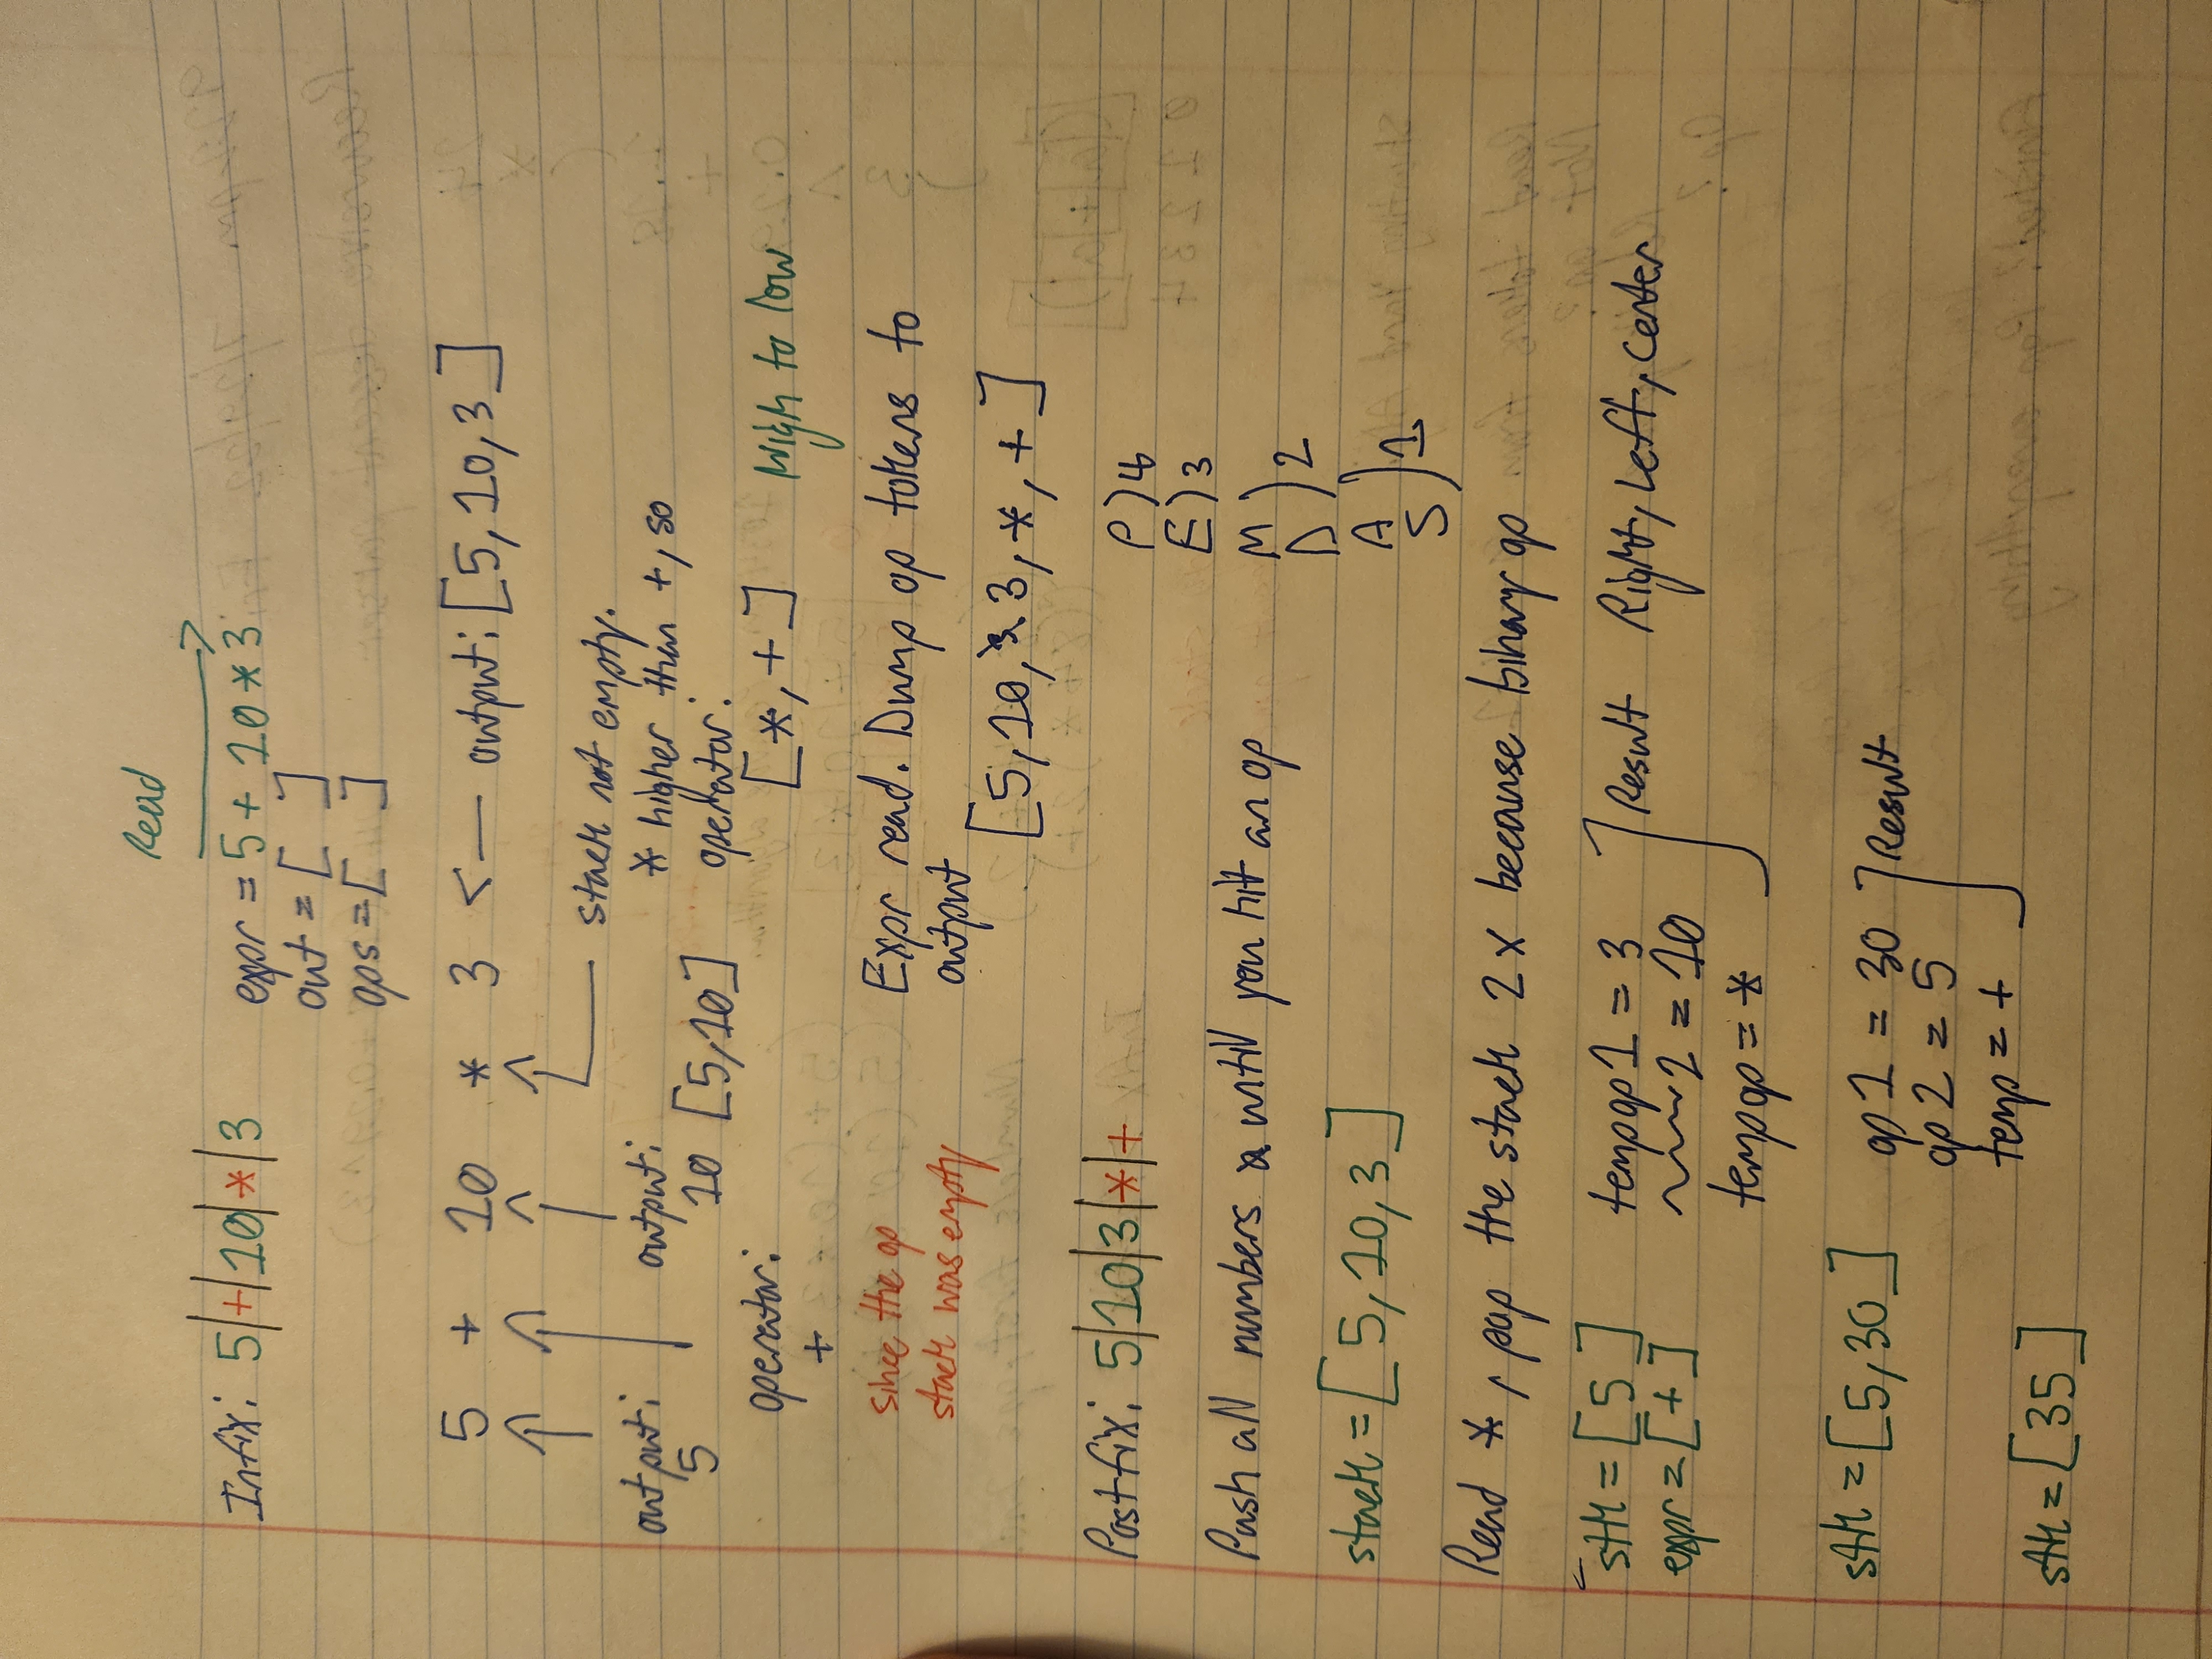 Read
Infix: 5|+|10|*|3
expr = 5 + 10 * 3
out = [ ]
ops = [ ]
5 + 10 * 3 <— output: [5, 10, 3]
stack not empty.
* higher than +, so
output:
5
operator:
+
output:
10 [5, 10]
operator:
[*, +]
High to low
since the op
stack was empty
Expr read. Dump op tokens to
output
[5, 10, 3, *, +]
Postfix: 5|10|3|*|+
P ) 4
E ) 3
M
D ) 2
A
S ) 1
Push all numbers until you hit an op
stack = [5, 10, 3]
Read *, pop the stack 2x because binary op
stk = [5]
expr = [+]
tempop1 = 3
2 = 10
tempop = *
Result Right, Left, Center
stk = [5, 30]
op1 = 30
op2 = 5
temp = +
Result
stk = [35]